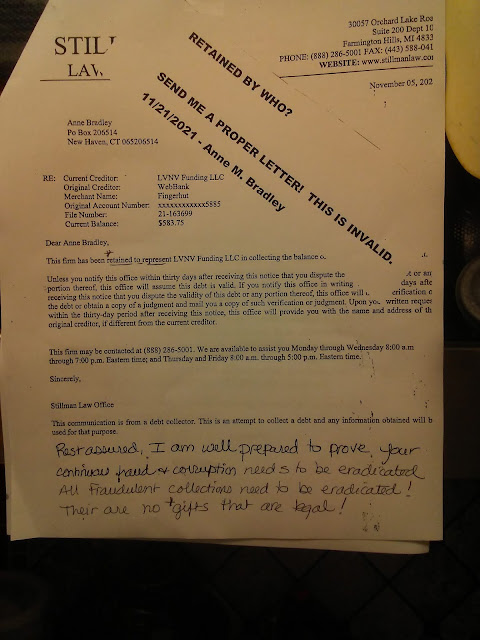 STILL
LAW
30057 Orchard Lake Roa
Suite 200 Dept 10
Farmington Hills, MI 4833
PHONE: (888) 286-5001 FAX: (443) 588-041
WEBSITE: www.stillmanlaw.co
November 05, 202
RETAINED BY WHO?
SEND ME A PROPER LETTER! THIS IS INVALID.
11/21/2021 - Anne M. Bradley
Anne Bradley
Po Box 206514
New Haven, CT 065206514
RE: Current Creditor: LVNV Funding LLC
Original Creditor: WebBank
Merchant Name: Fingerhut
Original Account Number: xxxxxxxxxxxx5885
File Number: 21-163699
Current Balance: $583.75
Dear Anne Bradley,
This firm has been retained to represent LVNV Funding LLC in collecting the balance o
Unless you notify this office within thirty days after receiving this notice that you dispute the or an
portion thereof, this office will assume this debt is valid. If you notify this office in writing days afte
receiving this notice that you dispute the validity of this debt or any portion thereof, this office will erification o
the debt or obtain a copy of a judgment and mail you a copy of such verification or judgment. Upon yo written reques
within the thirty-day period after receiving this notice, this office will provide you with the name and address of th
original creditor, if different from the current creditor.
This firm may be contacted at (888) 286-5001. We are available to assist you Monday through Wednesday 8:00 a.m
through 7:00 p.m. Eastern time; and Thursday and Friday 8:00 a.m. through 5:00 p.m. Eastern time.
Sincerely,
Stillman Law Office
This communication is from a debt collector. This is an attempt to collect a debt and any information obtained will b
used for that purpose.
Rest assured, I am well prepared to prove, your
continuous fraud & corruption needs to be eradicated
All fraudulent collections need to be eradicated!
Their are no gifts that are legal!